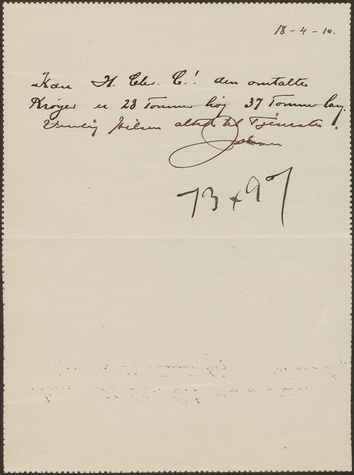 18-4-10.
Kære H. Chr. C.! den omtalte
Krøyer er 28 Tommer høj 37 Tommer lang.
Venlig Hilsen altid til Tjeneste.
73 x 97